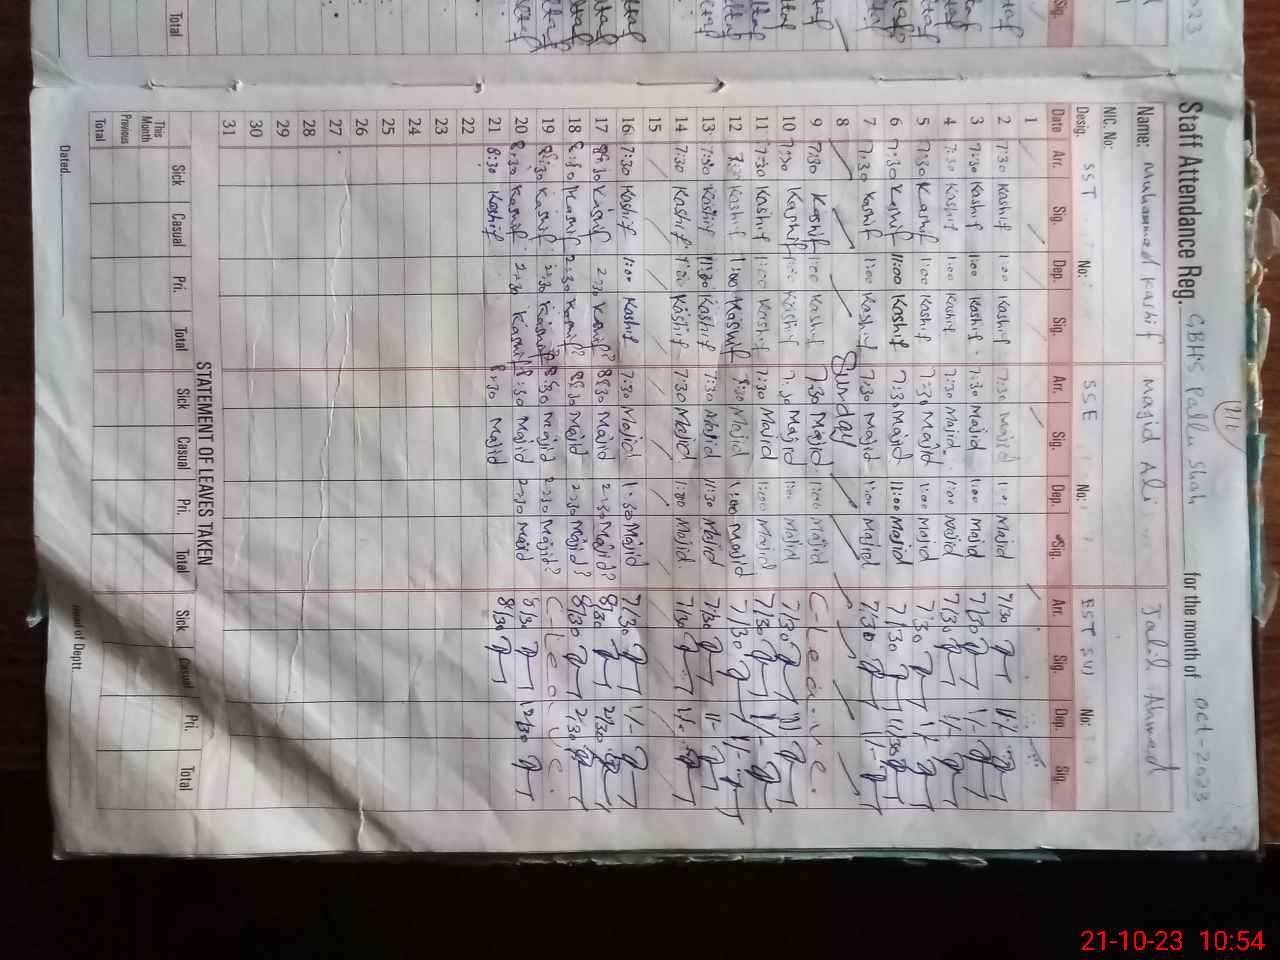 Staff Attendance Reg. GBHS Pallu Shah for the month of Oct-2023
Name: Muhammad Kashif Majid Ali Jalil Ahmed
NIC. No:
Desig. SST No: SSE No: EST No:
Date Arr. Sig. Dep. Sig. Arr. Sig. Dep. Sig. Arr. Sig. Dep. Sig.
1
2 7:30 Kashif 1:00 Kashif 7:30 Majid 1:00 Majid 7/30 1/-
3 7:30 Kashif 1:00 Kashif 7:30 Majid 1:00 Majid 7/30 1/-
4 7:30 Kashif 1:00 Kashif 7:30 Majid 1:00 Majid 7/30 1/-
5 7:30 Kashif 1:00 Kashif 7:30 Majid 1:00 Majid 7/30 1/-
6 7:30 Kashif 11:00 Kashif 7:30 Majid 11:00 Majid 7/30 11/30
7 7:30 Kashif 1:00 Kashif 7:30 Majid 1:00 Majid 7/30 1/-
8 Sunday
9 7:30 Kashif 1:00 Kashif 7:30 Majid 1:00 Majid C-Leave
10 7:30 Kashif 1:00 Kashif 7:30 Majid 1:00 Majid 7/30
11 7:30 Kashif 1:00 Kashif 7:30 Majid 1:00 Majid 7/30 1/-
12 7:30 Kashif 1:00 Kashif 7:30 Majid 1:00 Majid 7/30 1/-
13 7:30 Kashif 11:30 Kashif 7:30 Majid 11:30 Majid 7:30 1/-
14 7:30 Kashif 1:00 Kashif 7:30 Majid 1:00 Majid 7/30 1/-
15
16 7:30 Kashif 1:00 Kashif 7:30 Majid 1:30 Majid 7/30 1/-
17 8:30 Kashif 2:30 Kashif 8:30 Majid 2:30 Majid 8/30 2/30
18 8:30 Kashif 2:30 Kashif 8:30 Majid 2:30 Majid 8/30 2/30
19 8:30 Kashif 2:30 Kashif 8:30 Majid 2:30 Majid C-Leave
20 8:30 Kashif 2:30 Kashif 8:30 Majid 2:30 Majid 8/30 12/30
21 8:30 Kashif 8:30 Majid 8/30
22
23
24
25
26
27
28
29
30
31
STATEMENT OF LEAVES TAKEN
Sick Casual Pri. Total Sick Casual Pri. Total Sick Casual Pri. Total
This Month
Previous
Total
Dated Head of Deptt.
21-10-23 10:54